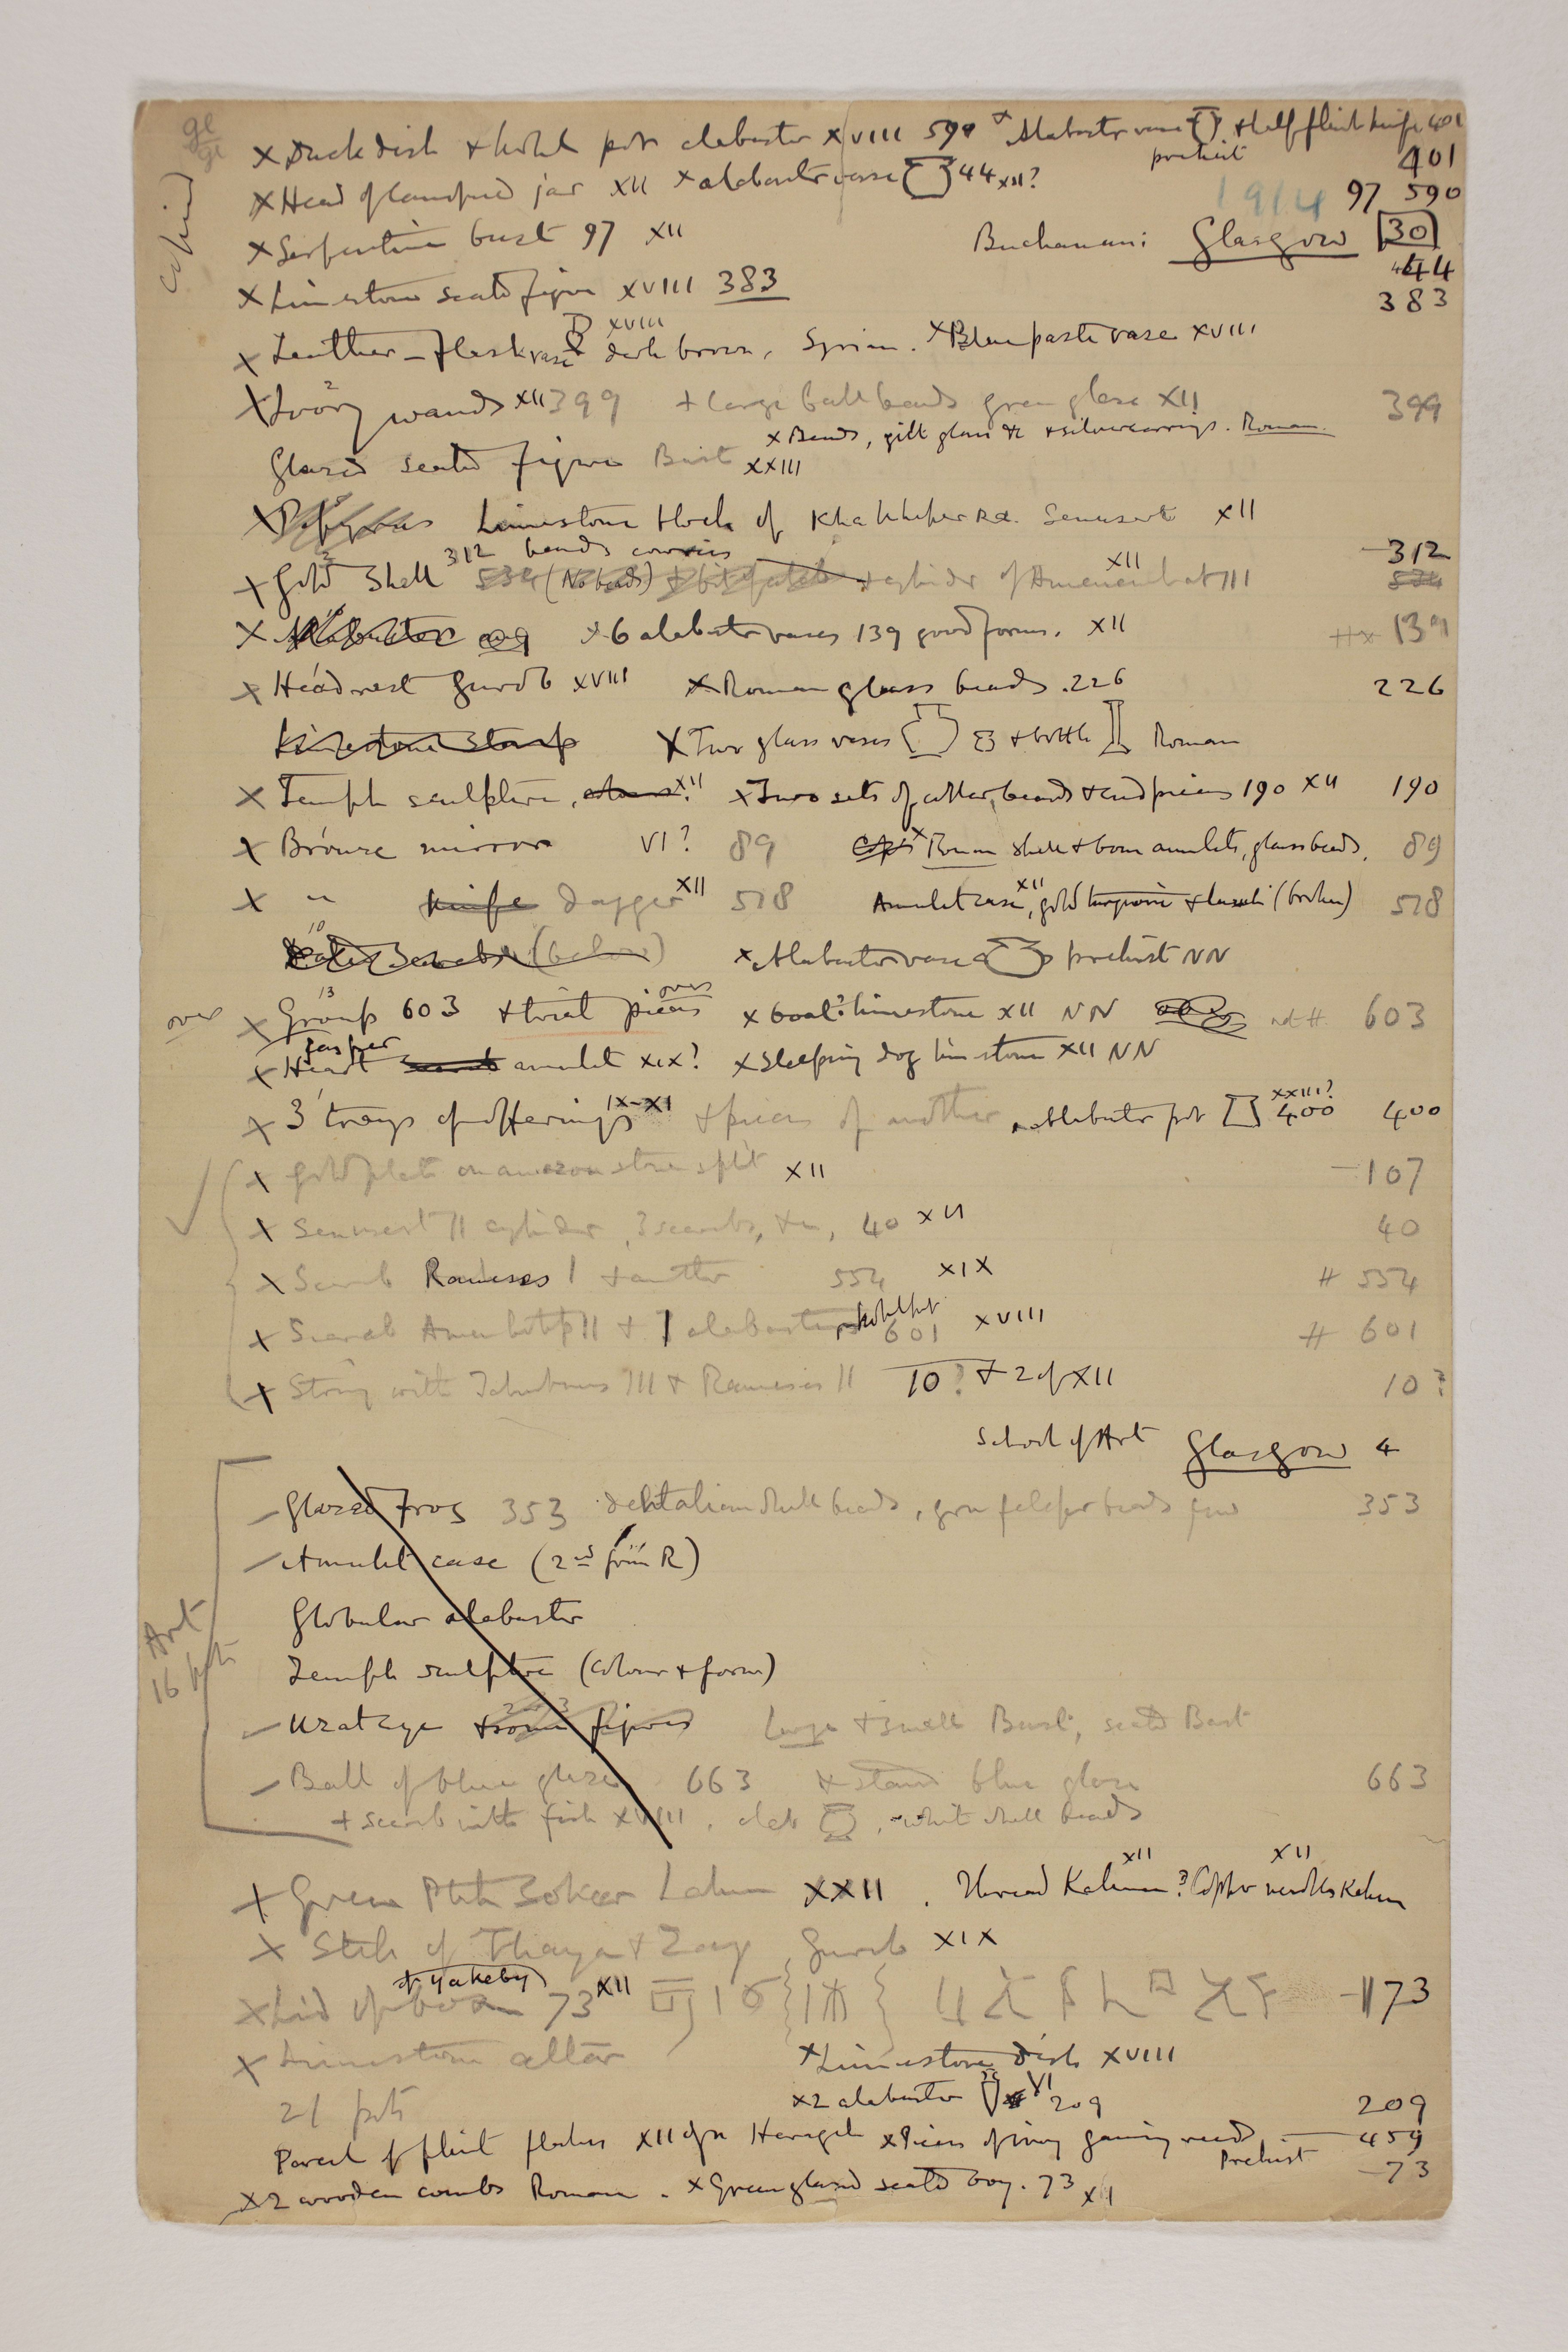 x Duck dish + kohl pot alabaster XVIII 590 x Alabaster vase + half flint knife 401
prehist 401
x Head of canopic jar XII x alabaster vase 44 XII?
1914 97 590
copied
x Serpentine bust 97 XII
Buchanan: Glasgow 30
44
x Limestone seated figure XVIII 383
383
x Leather - flask vase XVIII dark brown, Syrian. x Blue paste vase XVIII
x Ivory 2 wands XII 399 + large ball beads green glaze XII 399
x Beads, gilt glass &c + silver earrings. Roman
Glazed seated figure Bast XXIII
x Papyrus Limestone block of Khakheperra Senusert XII
x Gold 2 Shell 312 beads cowries 534 (No beads) + cylinder of Amenemhat III XII 312
534
x Alabaster x 6 alabaster vases 139 good forms. XII 139
x Headrest Gurob XVIII x Roman glass beads. 226 226
Limestone stamp x Two glass vases + bottle Roman
x Temple sculpture, XII x Two sets of collar, beads + end pieces 190 XII 190
x Bronze mirror VI? 89 x Roman shell + bone amulets, glass beads, 89
x " knife dagger XII 518 Amulet case XII, gold turquoise + lazuli (broken) 518
10 scarabs (below) x Alabaster vase prehist NN
over x Group 603 13 + trial pieces over x boat? limestone XII NN not # 603
x Heart jasper scarab amulet XIX? x Sleeping dog limestone XII NN
x 3 trays of offerings IX-XI + pieces of another, Alabaster pot XXIII? 400 400
x Gold plate on amazon stone split XII 107
x Senusert II cylinder, 3 scarabs, 40 XII 40
x Scarab Rameses I + another 554 XIX # 554
x Scarab Amenhotep II + 1 alabaster kohl pot 601 XVIII # 601
x String with Tahutmes III + Rameses II 10? + 2 of XII 10?
School of Art Glasgow 4
- Glazed Frog 353 dentalium shell beads, green felspar beads few 353
- Amulet case (2nd from R)
Globular alabaster
Art
16 pots
Temple sculpture (colour + form)
- Uzat eye + some figures large + small Bast, seated Bast
- Ball of blue glaze 663 + stand blue glaze 663
+ scarab with fish XVIII, alab, white shell beads
x Green Ptah Soker Lahun XXII. Thread Kahun XII? Copper needles Kahun XII
x Stele of Thaya + Zay, Gurob XIX
x Lid of box of Yakeby 73 XII 73
x Limestone altar x Limestone dish XVIII
21 pots x 2 alabaster VI 209 209
Parcel of flint flakes XII dyn Harageh x Pieces of ivory gaming reeds 459
Prehist
x 2 wooden combs Roman. x Green glazed seated boy. 73 XII 73